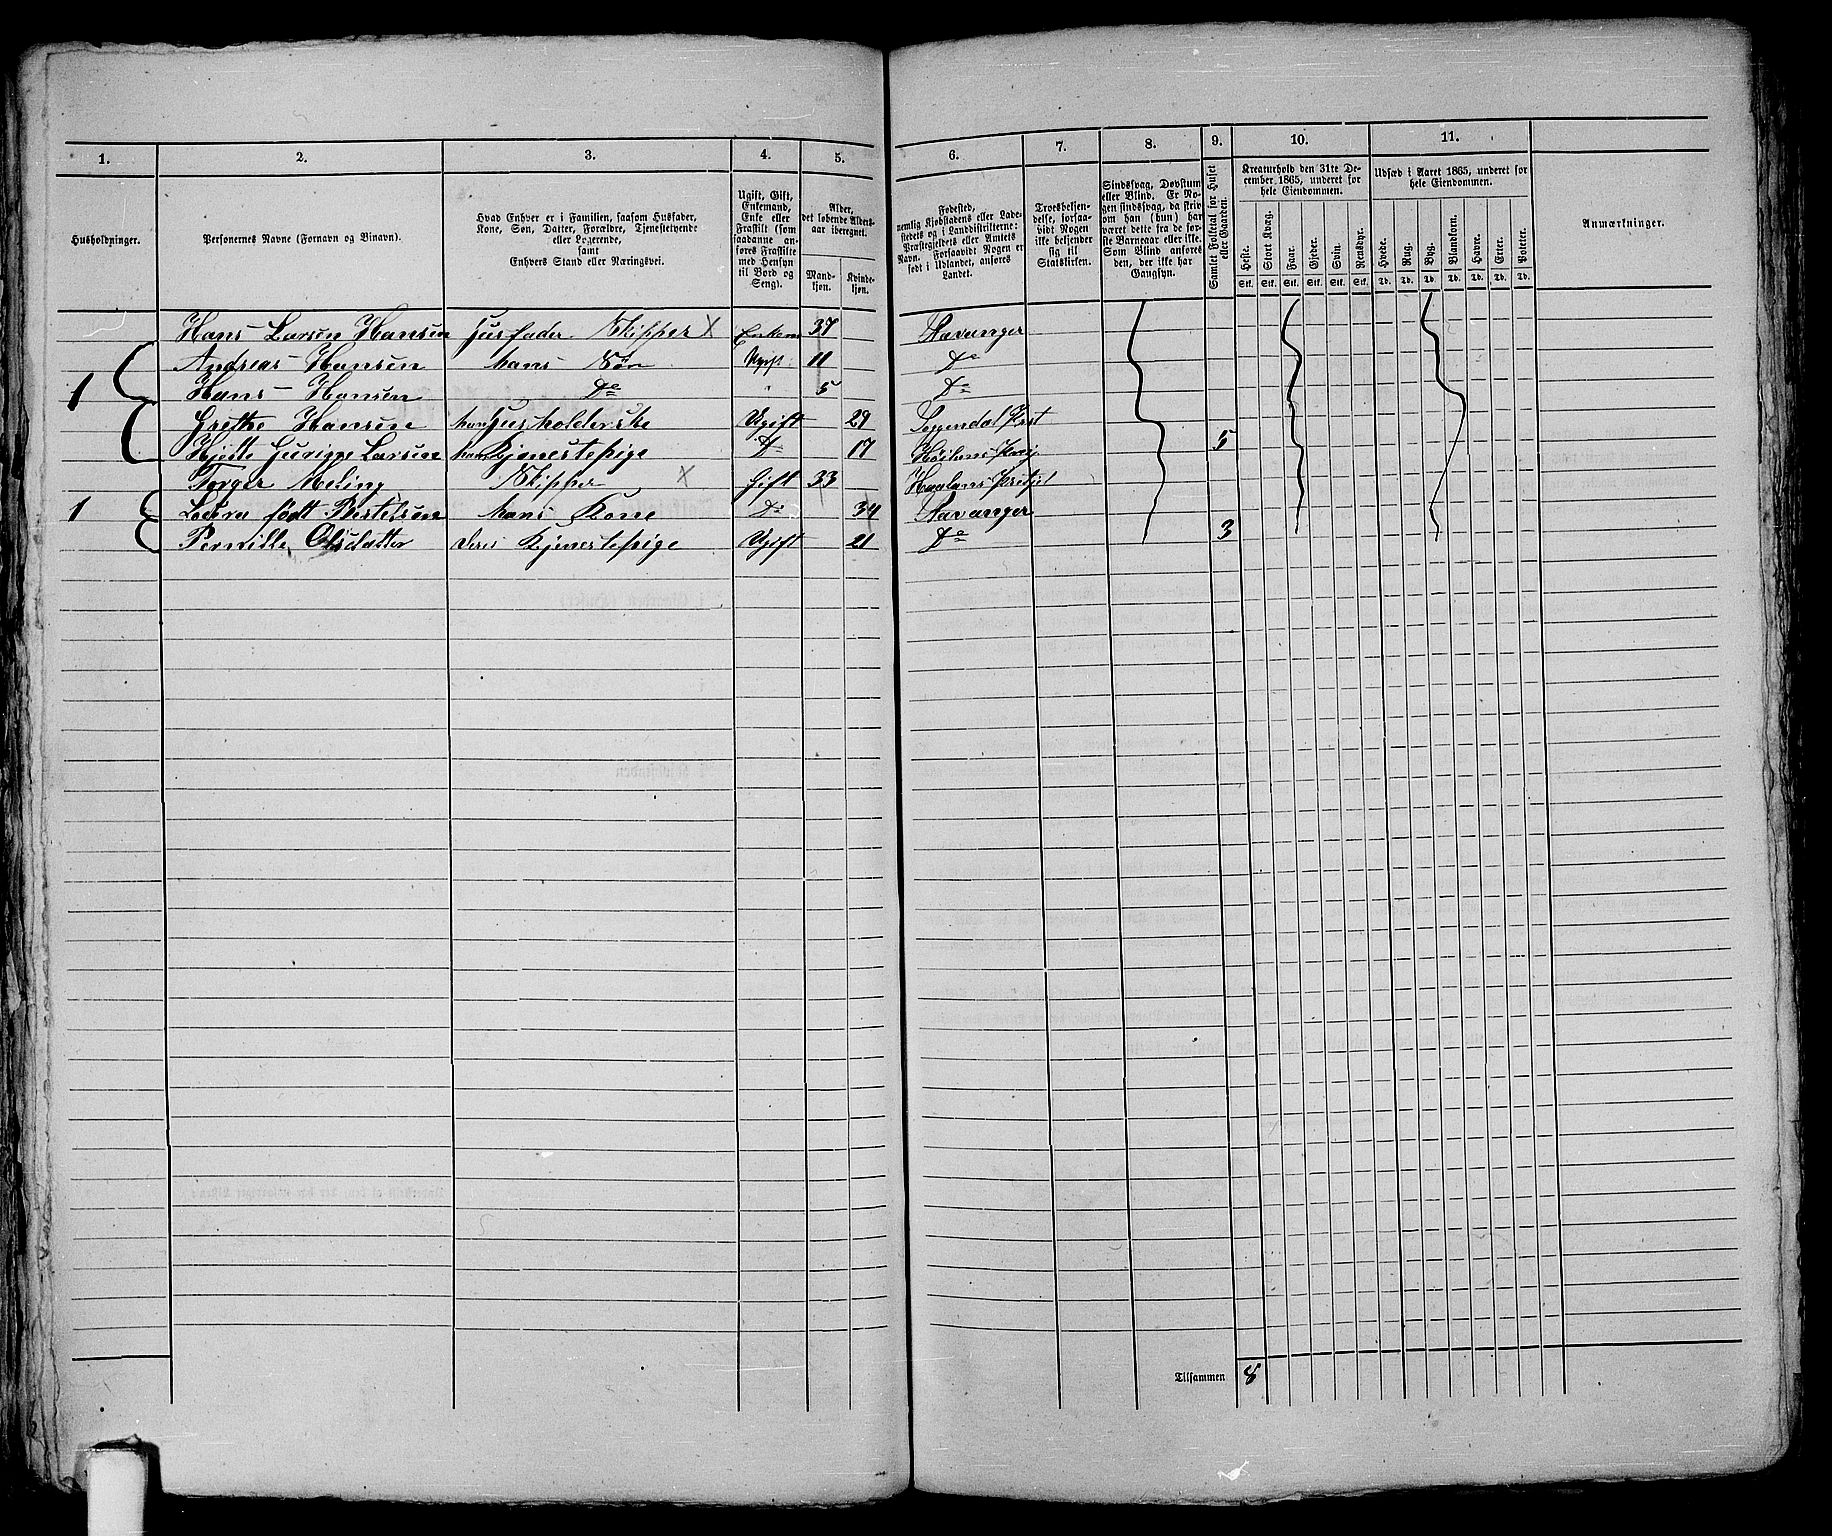 1. 2. 3. 4. 5. 6. 7. 8. 9. 10. 11.
Husholdninger.
Personernes Navne (Fornavn og Binavn).
Hvad Enhver er i Familien, saasom Husfader,
Kone, Søn, Datter, Forældre, Tjenestetyende
eller Logerende,
samt
Enhvers Stand eller Næringsvei.
Ugift, Gift,
Enkemand,
Enke eller
Fraskilt (som
saadanne an-
føres Fraskilte
med Hensyn
til Bord og
Seng).
Alder,
det løbende Alders-
aar iberegnet.
Mand-
kjøn.
Kvinde-
kjøn.
Fødested,
nemlig Kjøbstadens eller Lade-
stedets og i Landdistrikterne:
Præstegjeldets eller Amtets
Navn. Forsaavidt Nogen er
født i Udlandet, anføres
Landet.
Troesbekjen-
delse, forsaa-
vidt Nogen
ikke bekjender
sig til
Statskirken.
Sindssvag, Døvstum
eller Blind. Er No-
gen sindssvag, da skriv
om han (hun) har
været dette fra de før-
ste Barneaar eller ikke.
Som Blind anføres
den, der ikke har
Gangsyn.
Samlet Folketal for Huset
eller Gaarden.
Kreaturhold den 31te De-
cember 1865, underet for
hele Eiendommen.
Heste. Stort Kvæg. Faar. Gjeder. Svin. Rensdyr.
Stk. Stk. Stk. Stk. Stk. Stk.
Udsæd i Aaret 1865, underet for
hele Eiendommen.
Hvede. Rug. Byg. Blandkorn. Havre. Erter. Poteter.
Td. Td. Td. Td. Td. Td. Td.
Anmærkninger.
Hans Larsen Hansen Husfader Skipper X Enkem 37 Stavanger
Andreas Hansen hans Søn Ugift 11 Do
1 Hans Hansen Do " 5 Do
Grethe Hansen hans Husholderske Ugift 29
Larsen hans Tjenestepige Do 17 5
Torger Meling Skipper X Gift 33
1 født Bertelsen hans Kone Do 34 Stavanger
Pernille Olsdatter deres Tjenestepige Ugift 21 Do 3
Tilsammen 8